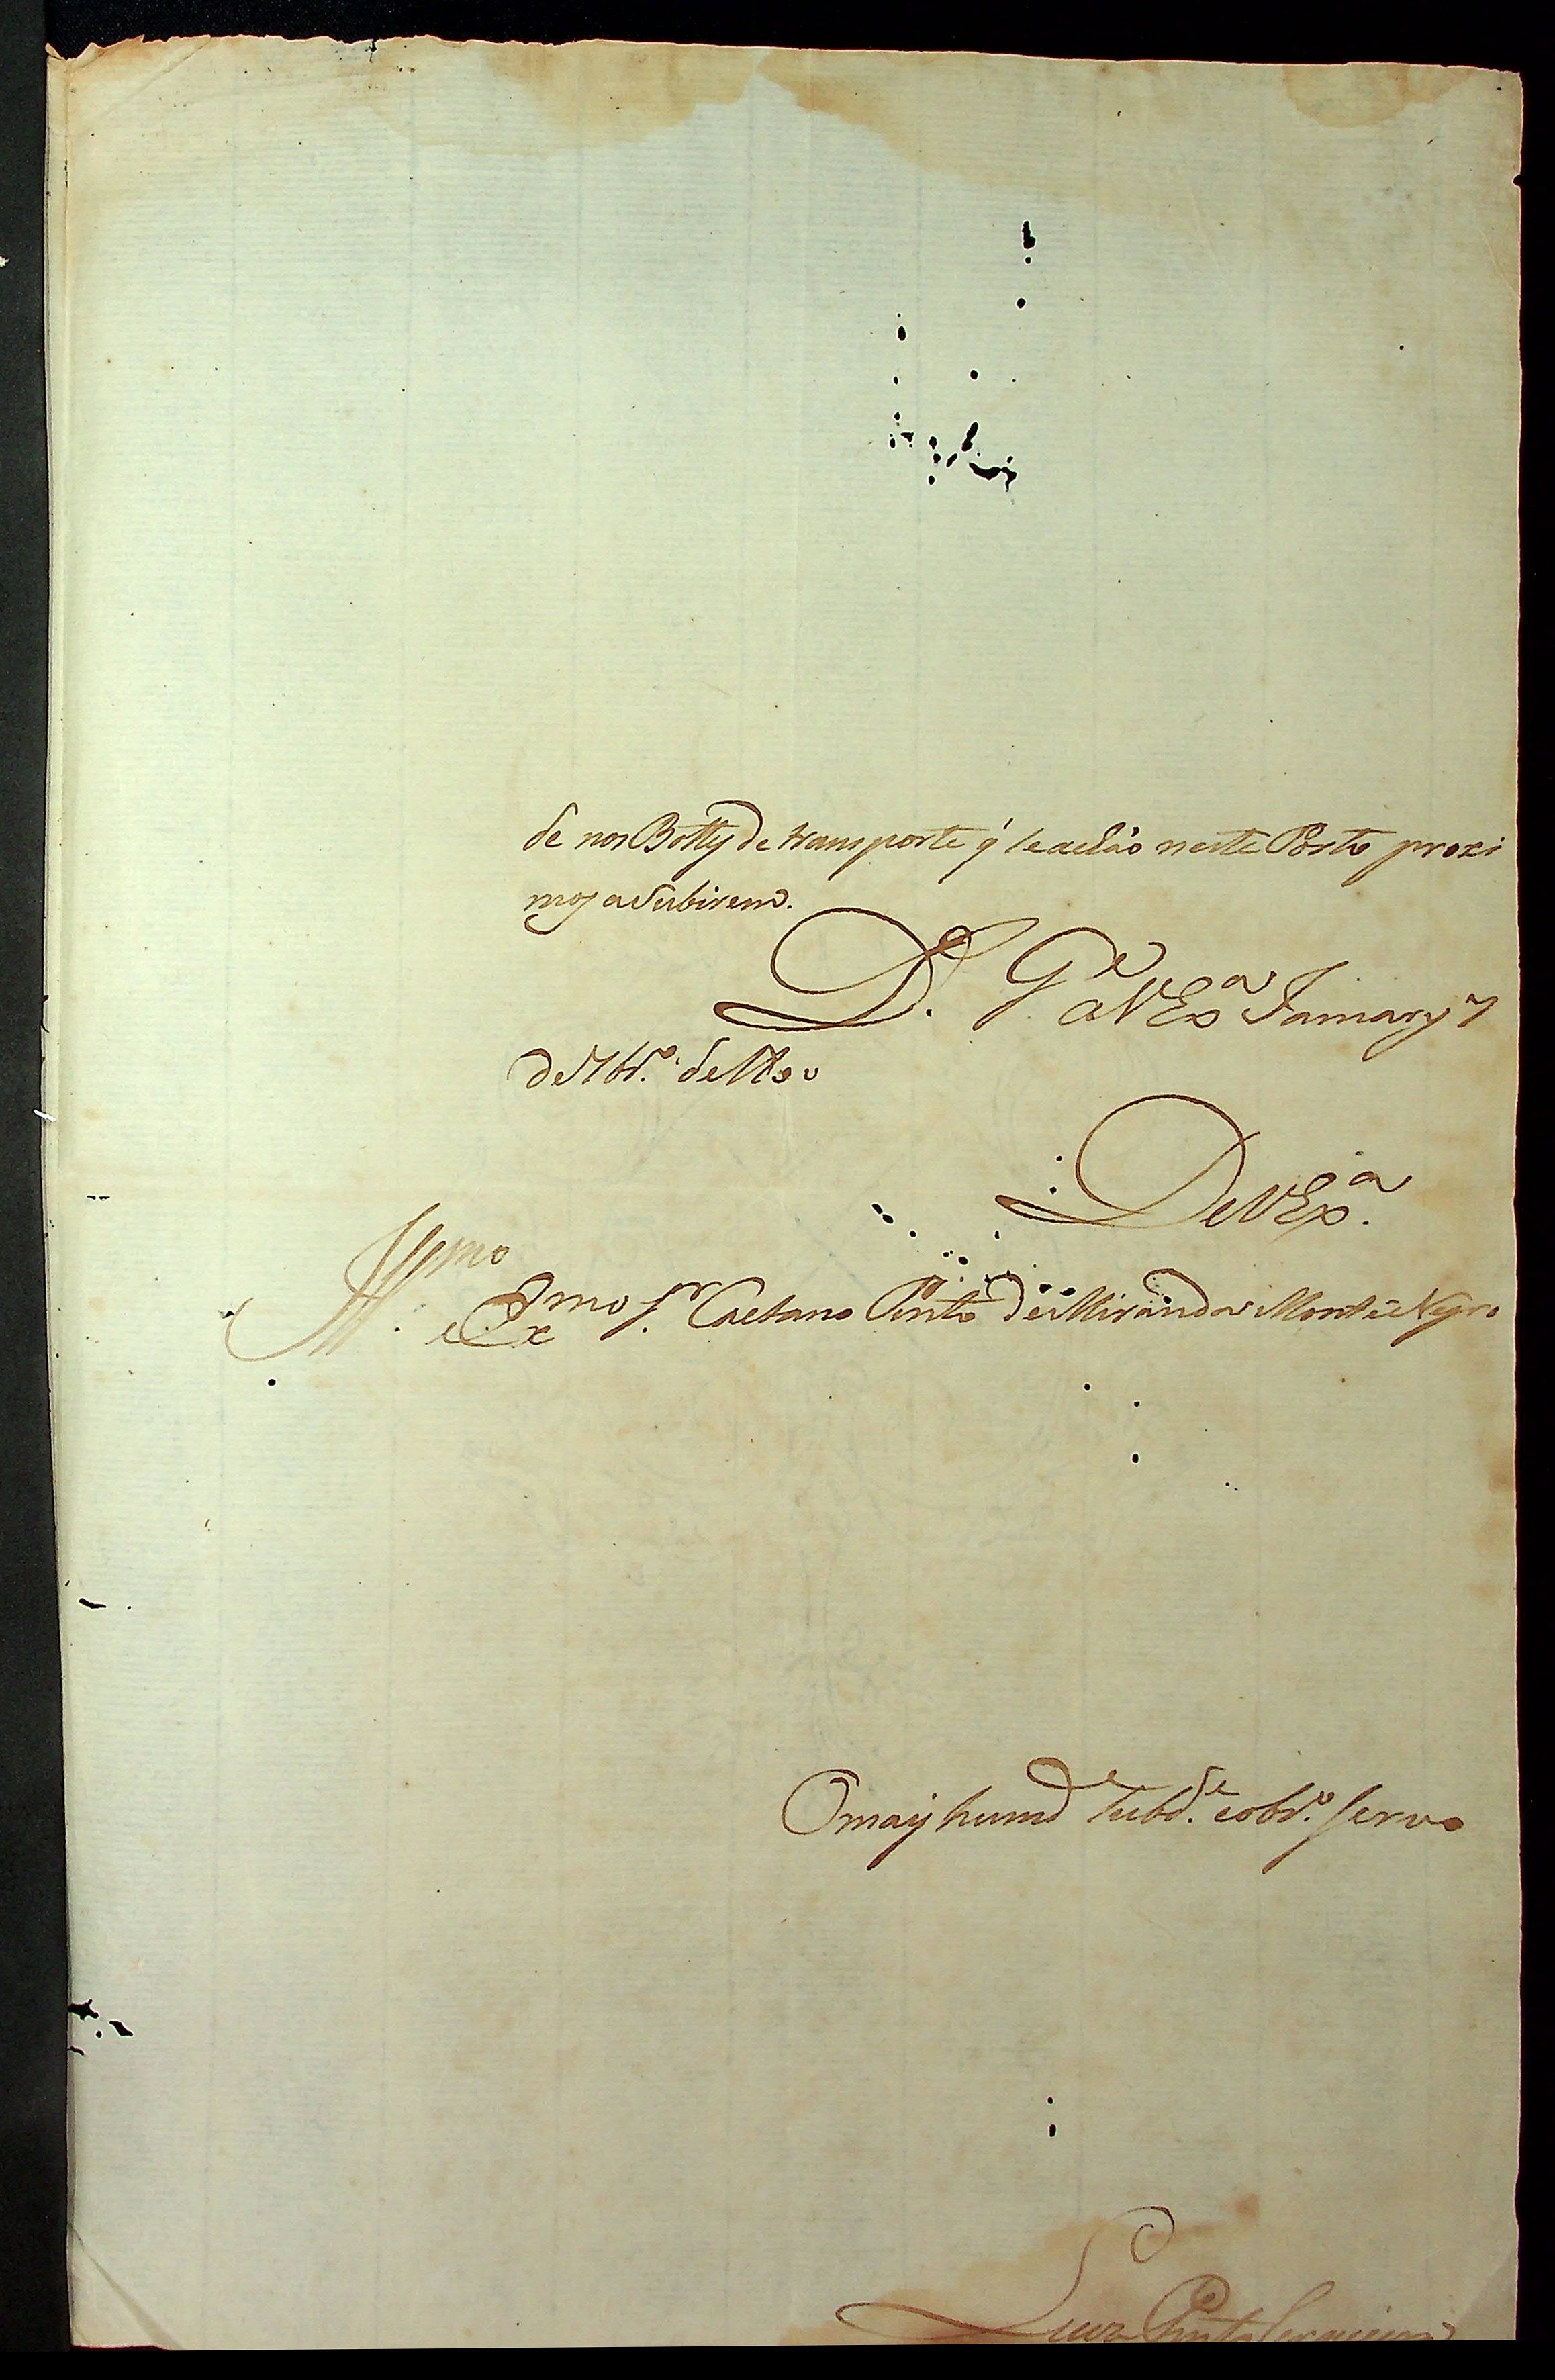 de nos Bottes de transporte q̃ se achão neste Porto proxi
mos a subirem.
D.s G.e a V Ex.a Jamary 7
de 7br.o de 1800
De V Ex.a
Ill.mo e Ex.mo S.r Caetano Pinto de Miranda Monte Negro
O mais humd.e subd.e e obr.o servo
Luiz Pinto